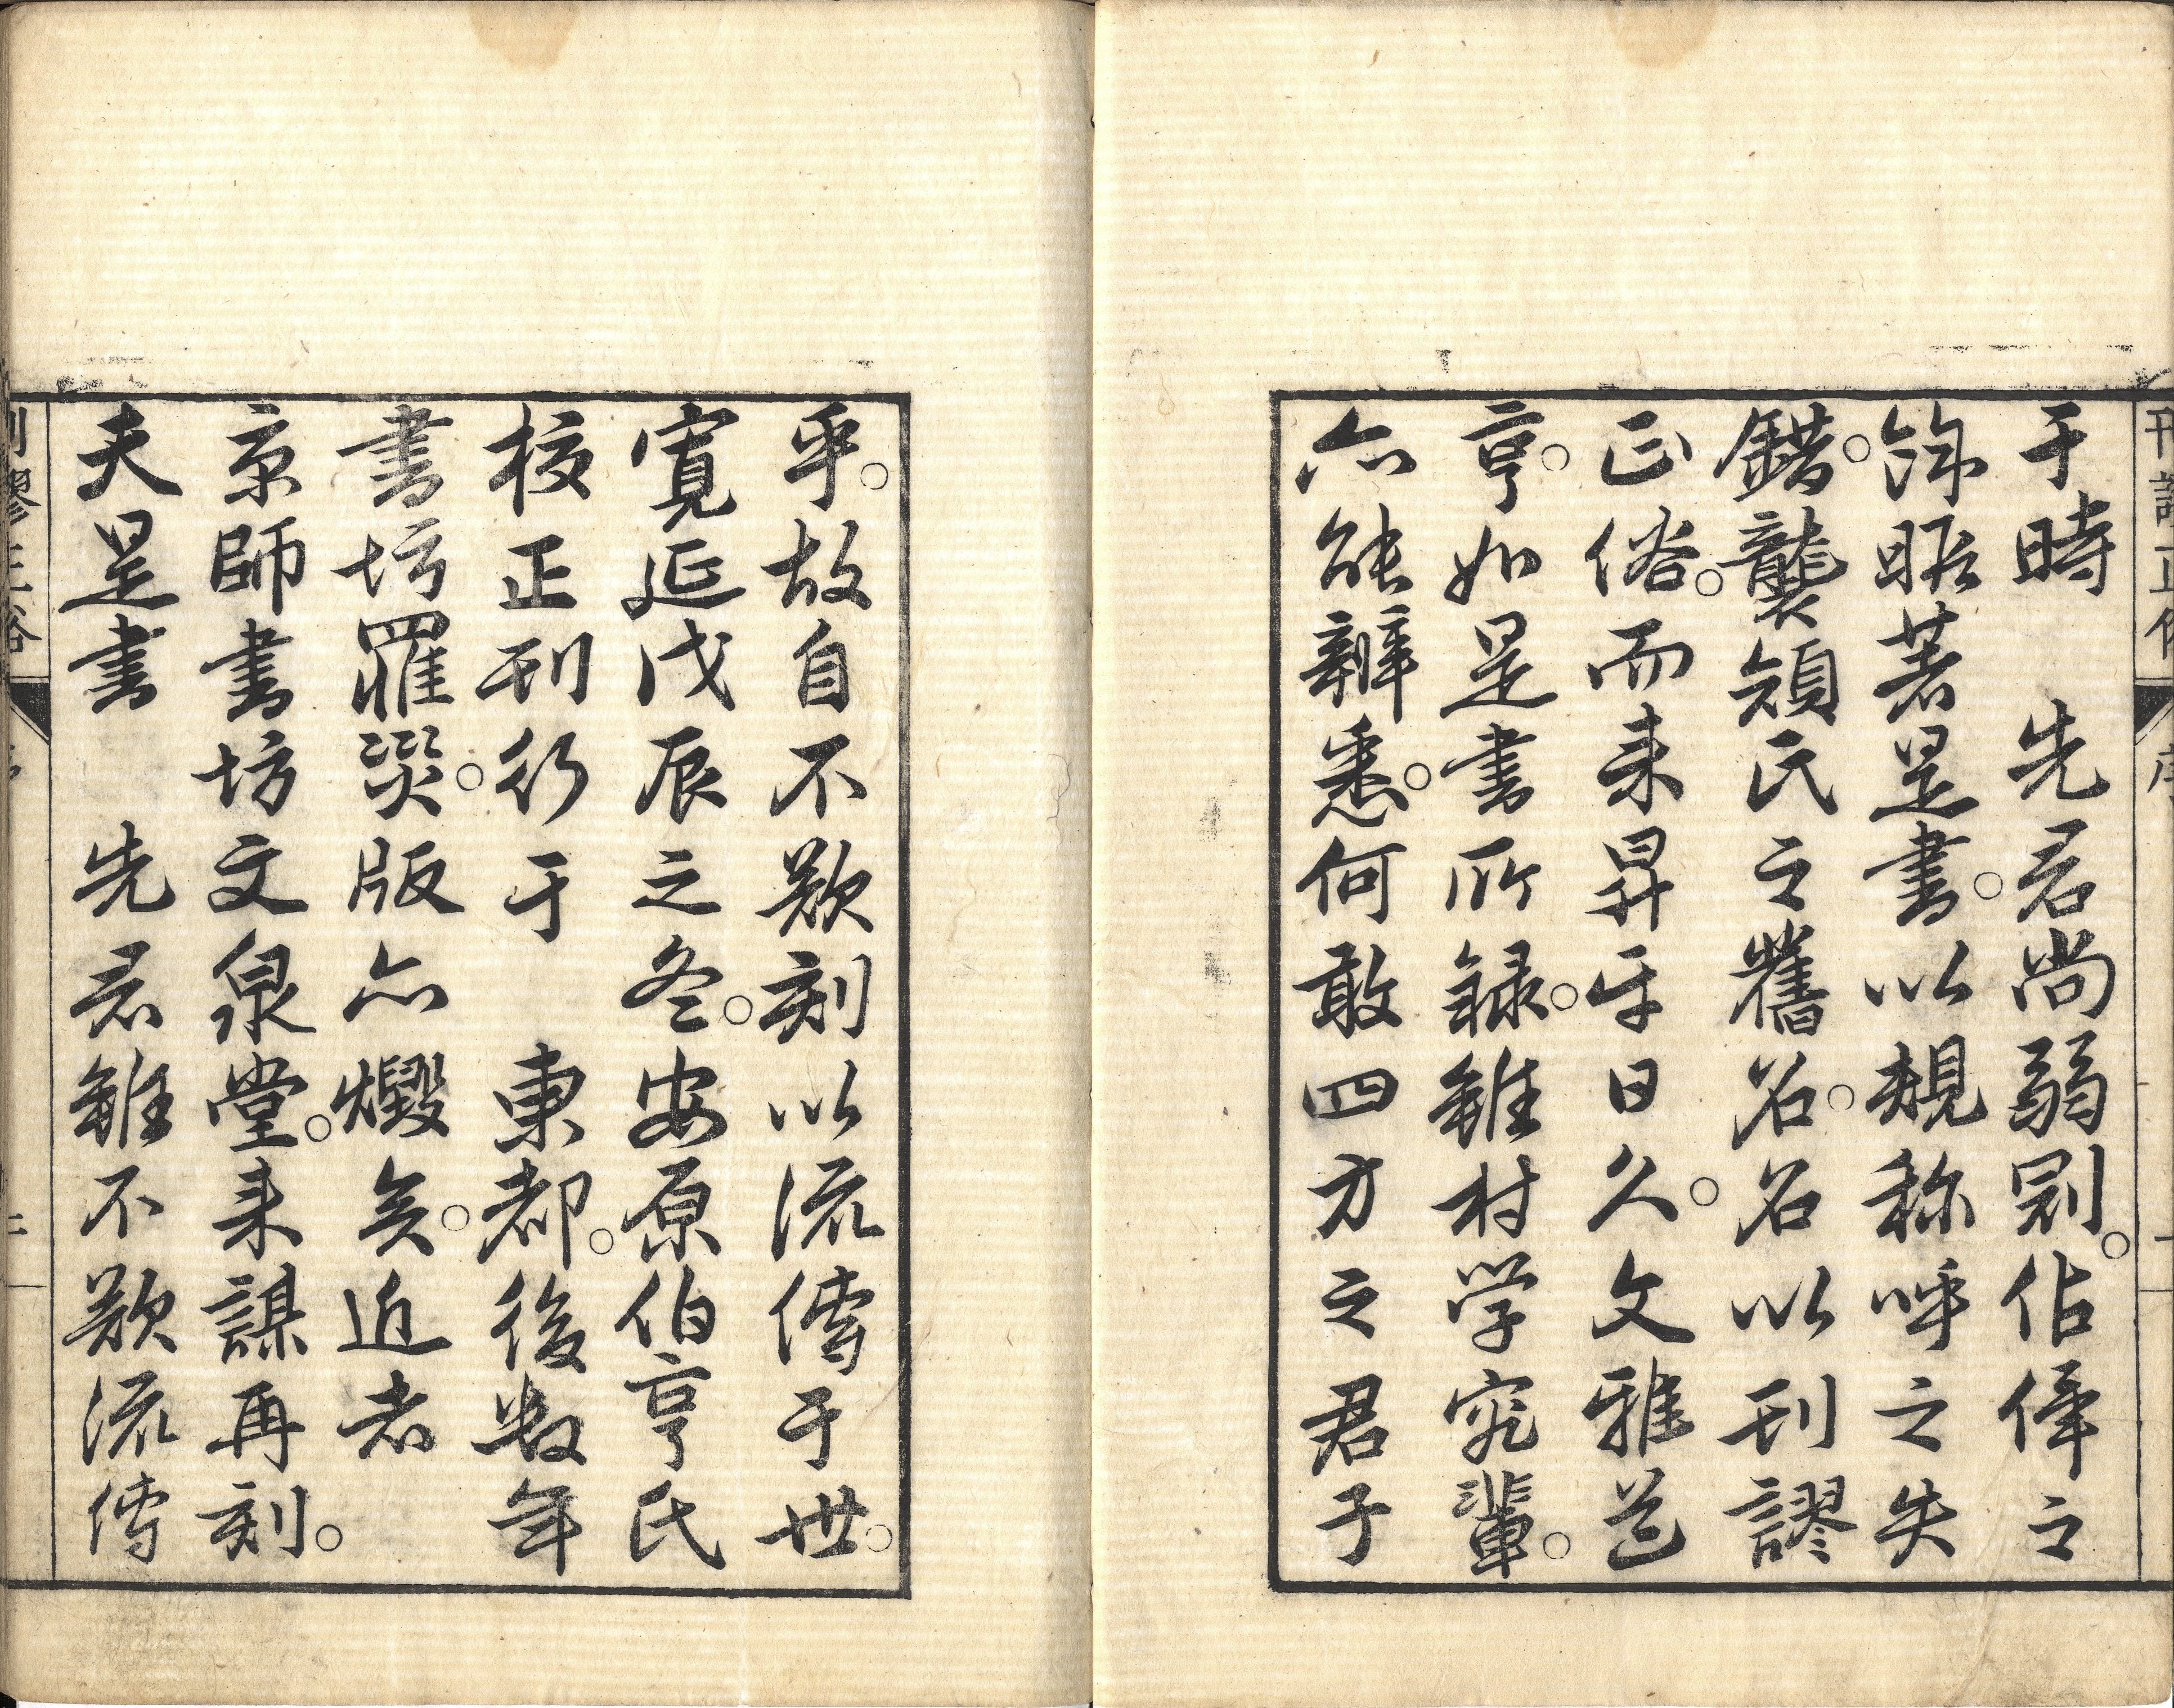 于時　先君尚弱冠。佔俾之
餘暇著是書。以規称呼之失
錯。襲顔氏之舊名。名以刊謬
正俗。而来昇平日久。文雅道
亨。如是書所録。雖村学究輩。
亦能辨悉。何敢四方之君子
乎。故自不欲刻以流傳于世。
寛延戊辰之冬。安原伯亨氏
校正刊行于　東都。後数年
書坊罹災。版亦燬矣。近者
京師書坊文泉堂。来謀再刻。
夫是書　先君雖不欲流傳
刊謬正俗
序